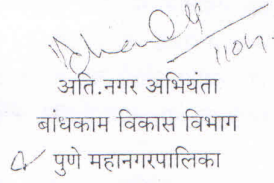 अति.नगर अभियंता
बांधकाम विकास विभाग
पुणे महानगरपालिका